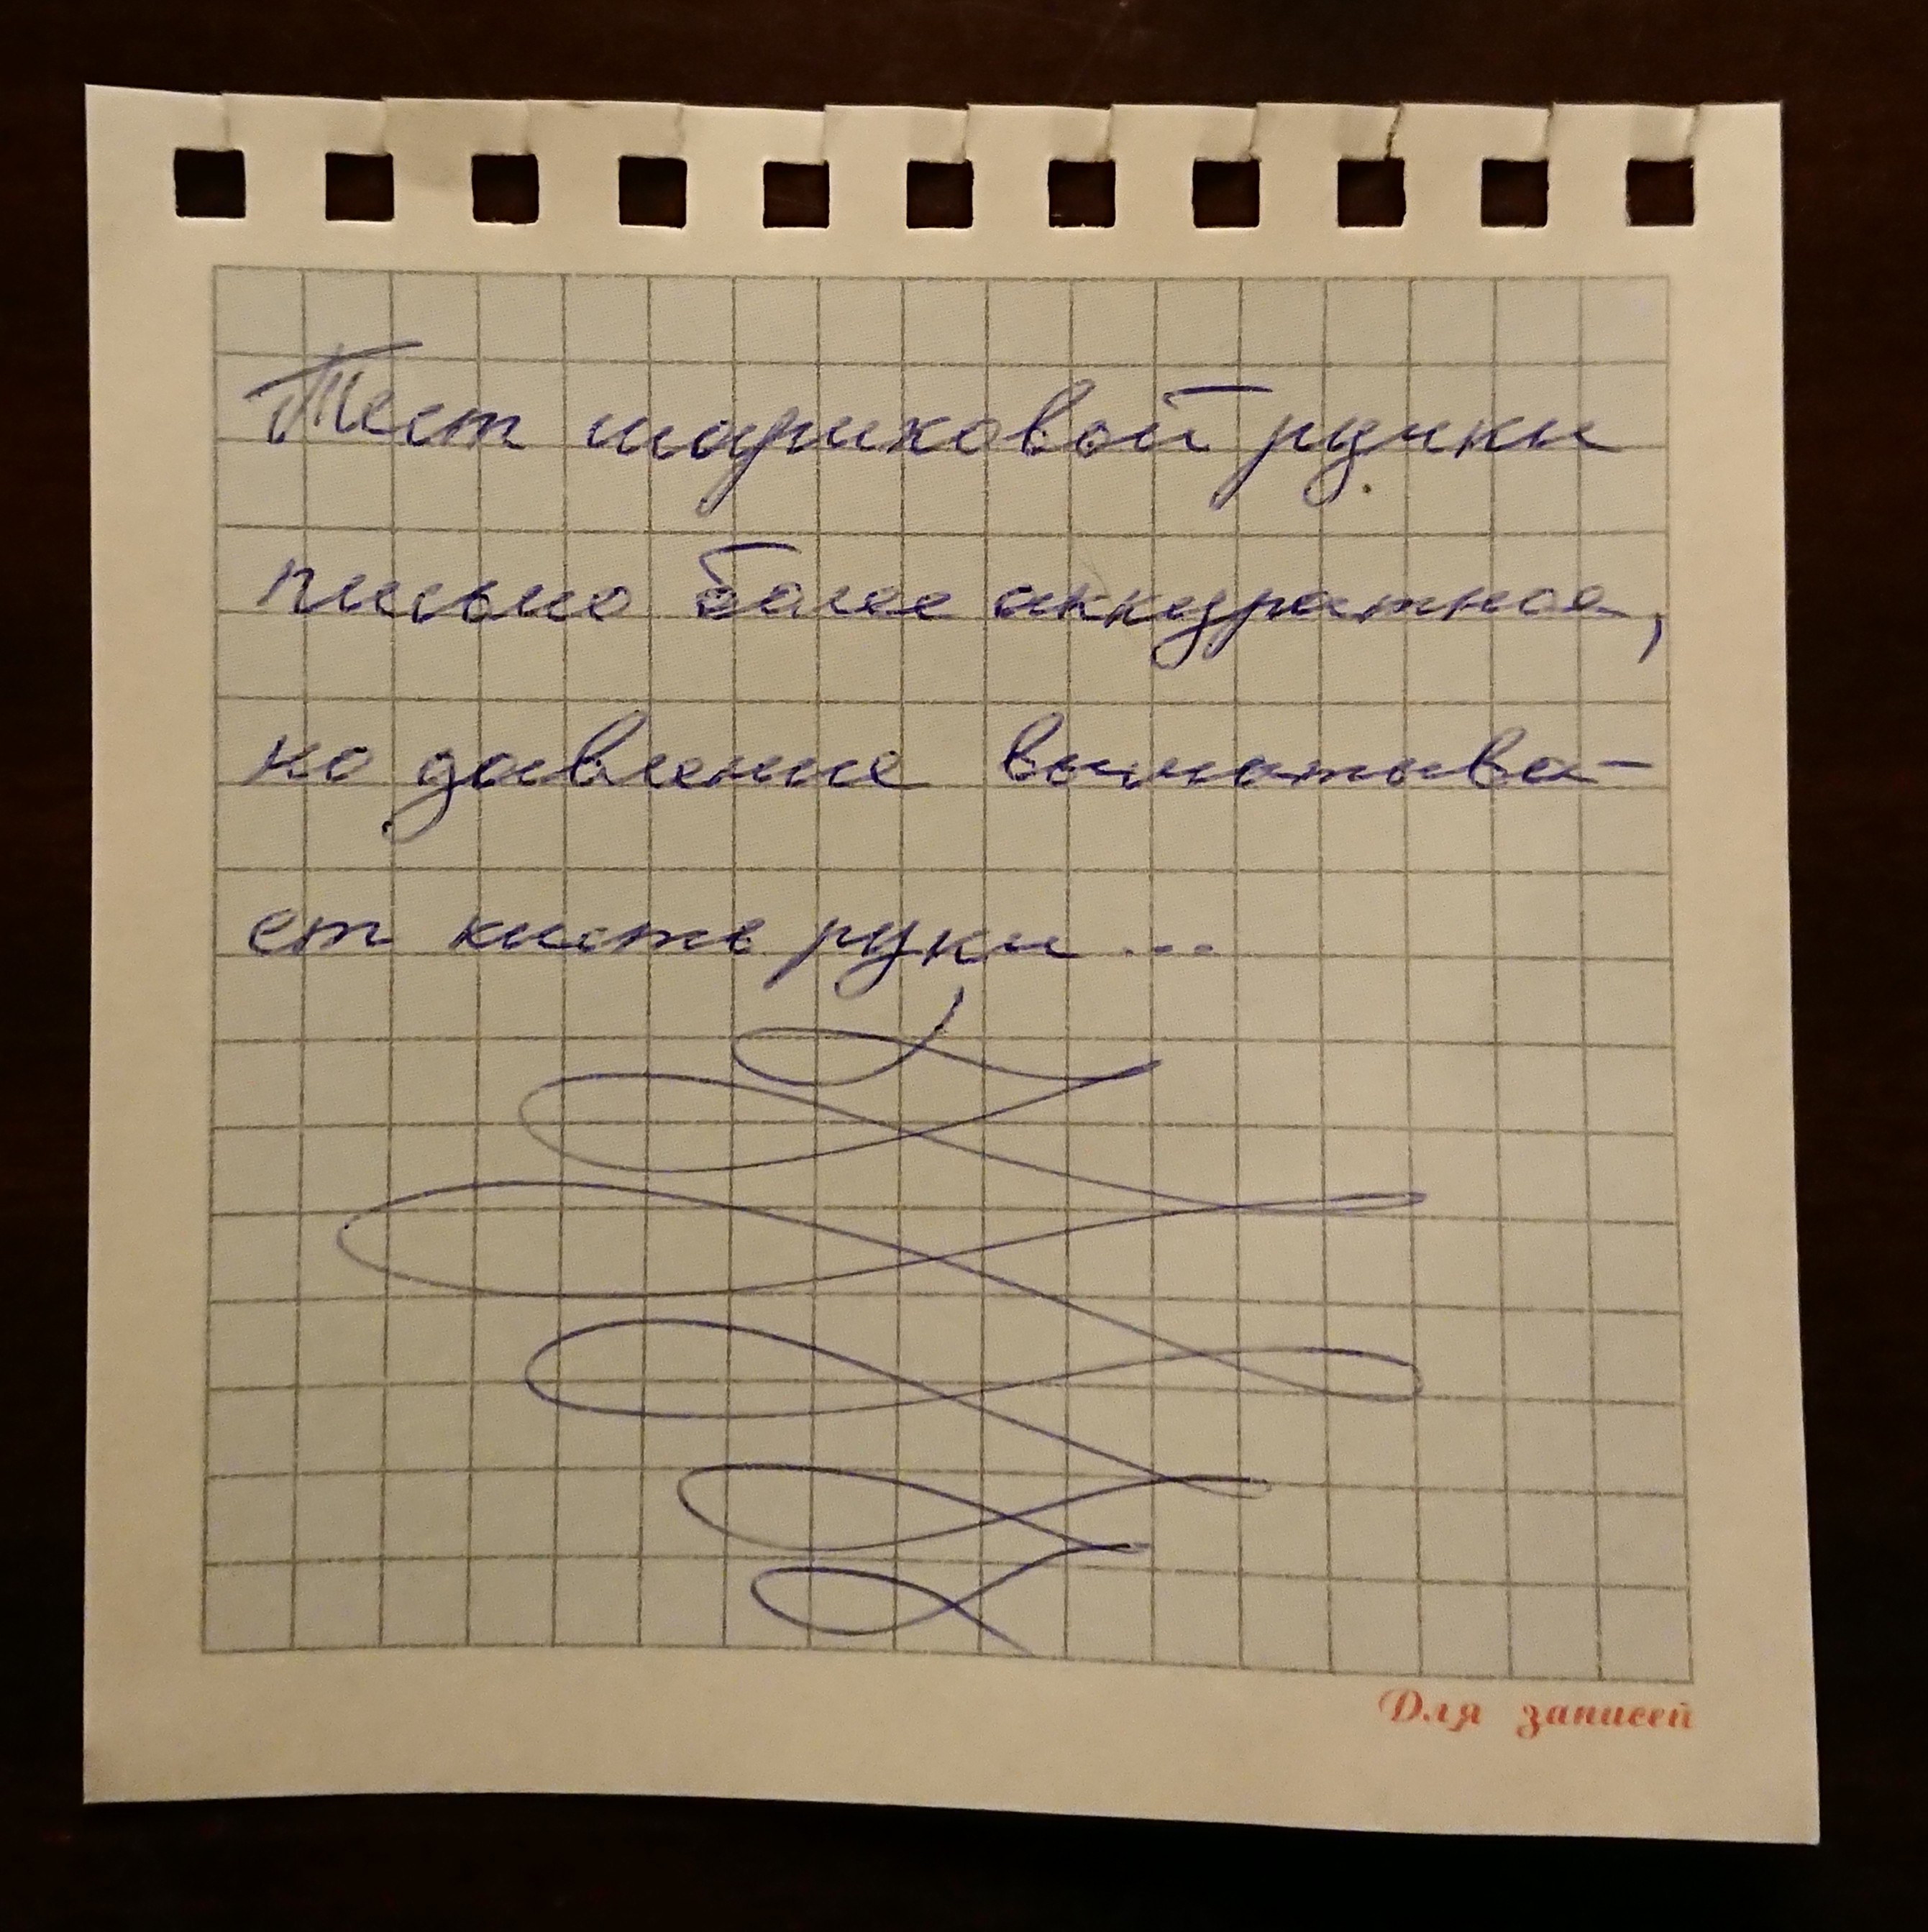 Тест шариковой ручки
письмо более аккуратное,
но давление выматыва-
ет кисть руки...
Для записей